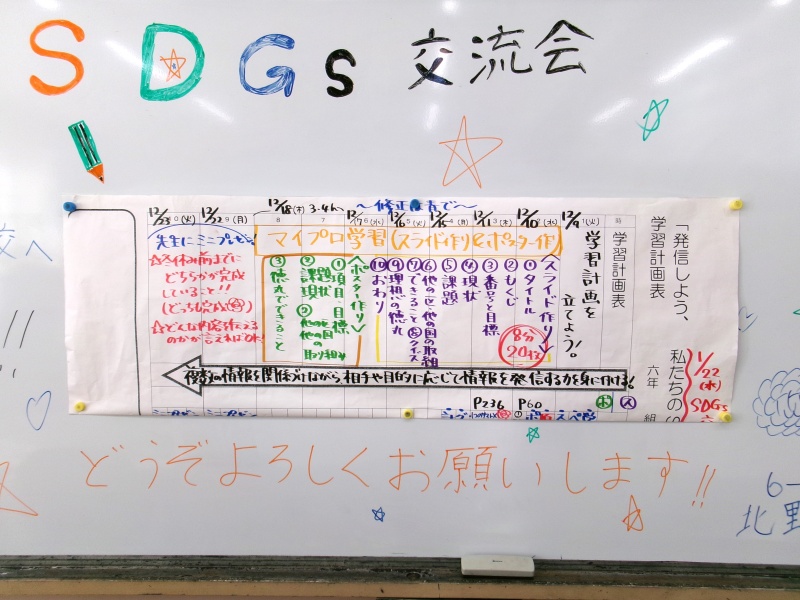 SDGs 交流会
「発信しよう、私たちのS
学習計画表
六年 組
1/22
(木)
SDGs
時
学習計画表
12/9 1(火)
学習計画を
立てよう!。
12/10 2(水)
12/11 3(木)
12/15 4(月)
12/16 5(火)
12/17 6(水)
12/18(木) 3.4h
〜修正は青で〜
7
8
12/22 9(月)
12/23 10(火)
マイプロ学習(スライド作り&ポスター作り)
〈スライド作り〉
①タイトル
②もくじ
③番号と目標
④現状
⑤課題
⑥他の区、他の国の取組
⑦できること
クイズ
⑨理想の徳丸
⑩おわり
8分
20才
〈ポスター作り〉
①項目、目標
②課題
現状
他の区
他の国の
取り組み
③徳丸でできること
先生にミニプレゼン!
☆冬休み前までに
どちらかが完成
していること!!
(どっちも完成)
☆どんな内容を伝える
のかが言えればOK!
複数の情報を関係づけながら、相手や目的に応じて情報を発信する力を身に付ける!
P236 P60
ポ ス
どうぞよろしくお願いします!!
校へ
6-
北野